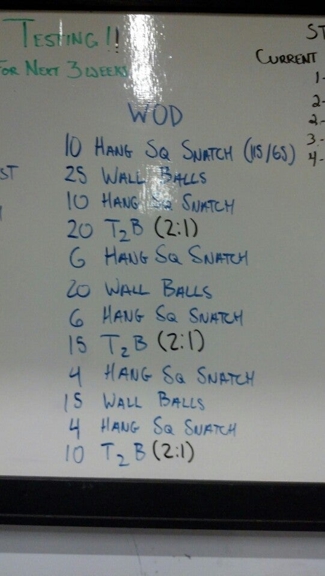 TESTING!!
FOR NEXT 3 WEEKS
ST
CURRENT
1-
2-
2-
3-
4-
ST
WOD
10 HANG SQ SNATCH (115/65)
25 WALL BALLS
10 HANG SQ SNATCH
20 T2B (2:1)
6 HANG SQ SNATCH
20 WALL BALLS
6 HANG SQ SNATCH
15 T2B (2:1)
4 HANG SQ SNATCH
15 WALL BALLS
4 HANG SQ SNATCH
10 T2B (2:1)